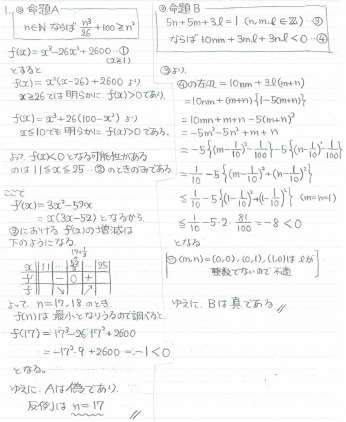 1. ◎命題A
n∈N ならば n³/26 + 100 ≥ n²
f(x) = x³-26x²+2600 … ① (x≥1)
とすると
f(x) = x²(x-26)+2600 より
x≥26では明らかに f(x)>0であり、
f(x) = x³+26(100-x²) より
x≤10でも明らかに f(x)>0である。
よって、f(x)<0となる可能性がある
のは 11≤x≤25 …② のときのみである
ここで
f'(x) = 3x²-52x
= x(3x-52) となるから
②における f(x)の増減は
下のようになる
17+1/3
x | 11 | … | 52/3 | … | 25
f' | - | 0 | +
f | ↘ | ↗
よって、n=17,18のとき、
f(n)は最小となりうるので調べると、
f(17) = 17³-26・17²+2600
= -17²・9+2600 = -1<0
となる。
ゆえに、Aは偽であり、
反例は n=17
◎命題B
5n+5m+3l=1 (n,m,l∈Z) …③
ならば 10nm+3ml+3nl<0 …④
③より、
④の左辺 = 10nm+3l(m+n)
= 10nm+(m+n){1-5(m+n)}
= 10nm+m+n-5(m+n)²
= -5m²-5n²+m+n
= -5{(m-1/10)²-1/100}-5{(n-1/10)²-1/100}
= 1/10-5{(m-1/10)²+(n-1/10)²}
≤ 1/10-5{(1-1/10)²+(1-1/10)²} (m=n=1)
≤ 1/10-5・2・81/100 = -8<0
となる
(m,n)=(0,0),(0,1),(1,0)は lが
整数でないので不適
ゆえに、Bは真である